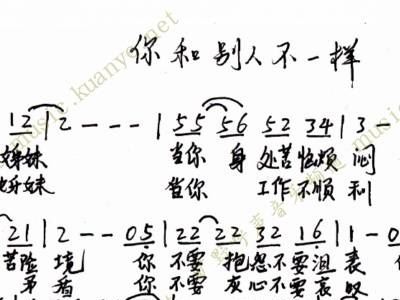 你和别人不一样
12 | 2 - - - | 55 56 52 34 | 3 -
姊妹 当你 身 处苦恼烦 闷
姊妹 当你 工作不顺 利
21 | 2 - - 05 | 22 22 32 16 | 1 - 0
苦险 境 你 不要 抱怨不要沮 丧
你 不要 灰心不要哀